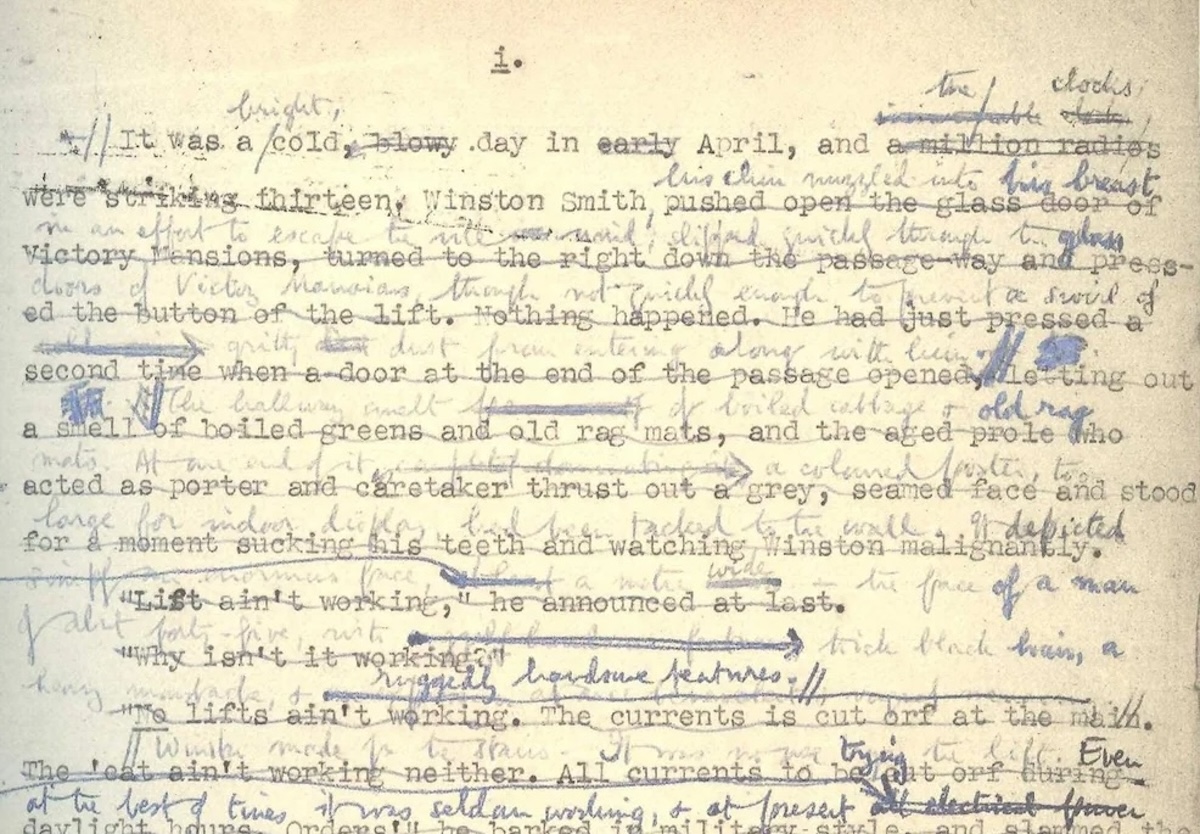 i.
the clocks
bright,
It was a cold, blowy day in early April, and a million radios
his chin nuzzled into his breast
were striking thirteen. Winston Smith pushed open the glass door of
in an effort to escape the vile wind, slipped quickly through the glass
Victory Mansions, turned to the right down the passage-way and press-
doors of Victory Mansions, though not quickly enough to prevent a swirl of
ed the button of the lift. Nothing happened. He had just pressed a
gritty dust from entering along with him.
second time when a door at the end of the passage opened, letting out
The hallway smelt of boiled cabbage & old rag
a smell of boiled greens and old rag mats, and the aged prole who
mats. At one end of it a coloured poster, too
acted as porter and caretaker thrust out a grey, seamed face and stood
large for indoor display, had been tacked to the wall. It depicted
for a moment sucking his teeth and watching Winston malignantly.
simply an enormous face, a metre wide - the face of a man
"Lift ain't working," he announced at last.
of abt forty-five, with thick black hair, a
"Why isn't it working?"
ruggedly handsome features.
heavy moustache, &
"No lifts ain't working. The currents is cut orf at the main.
Winston made for the stairs. It was no use trying the lift. Even
The 'eat ain't working neither. All currents to be cut orf during
at the best of times it was seldom working, & at present electrical power
daylight hours. Orders!" he barked in military style, and slammed the